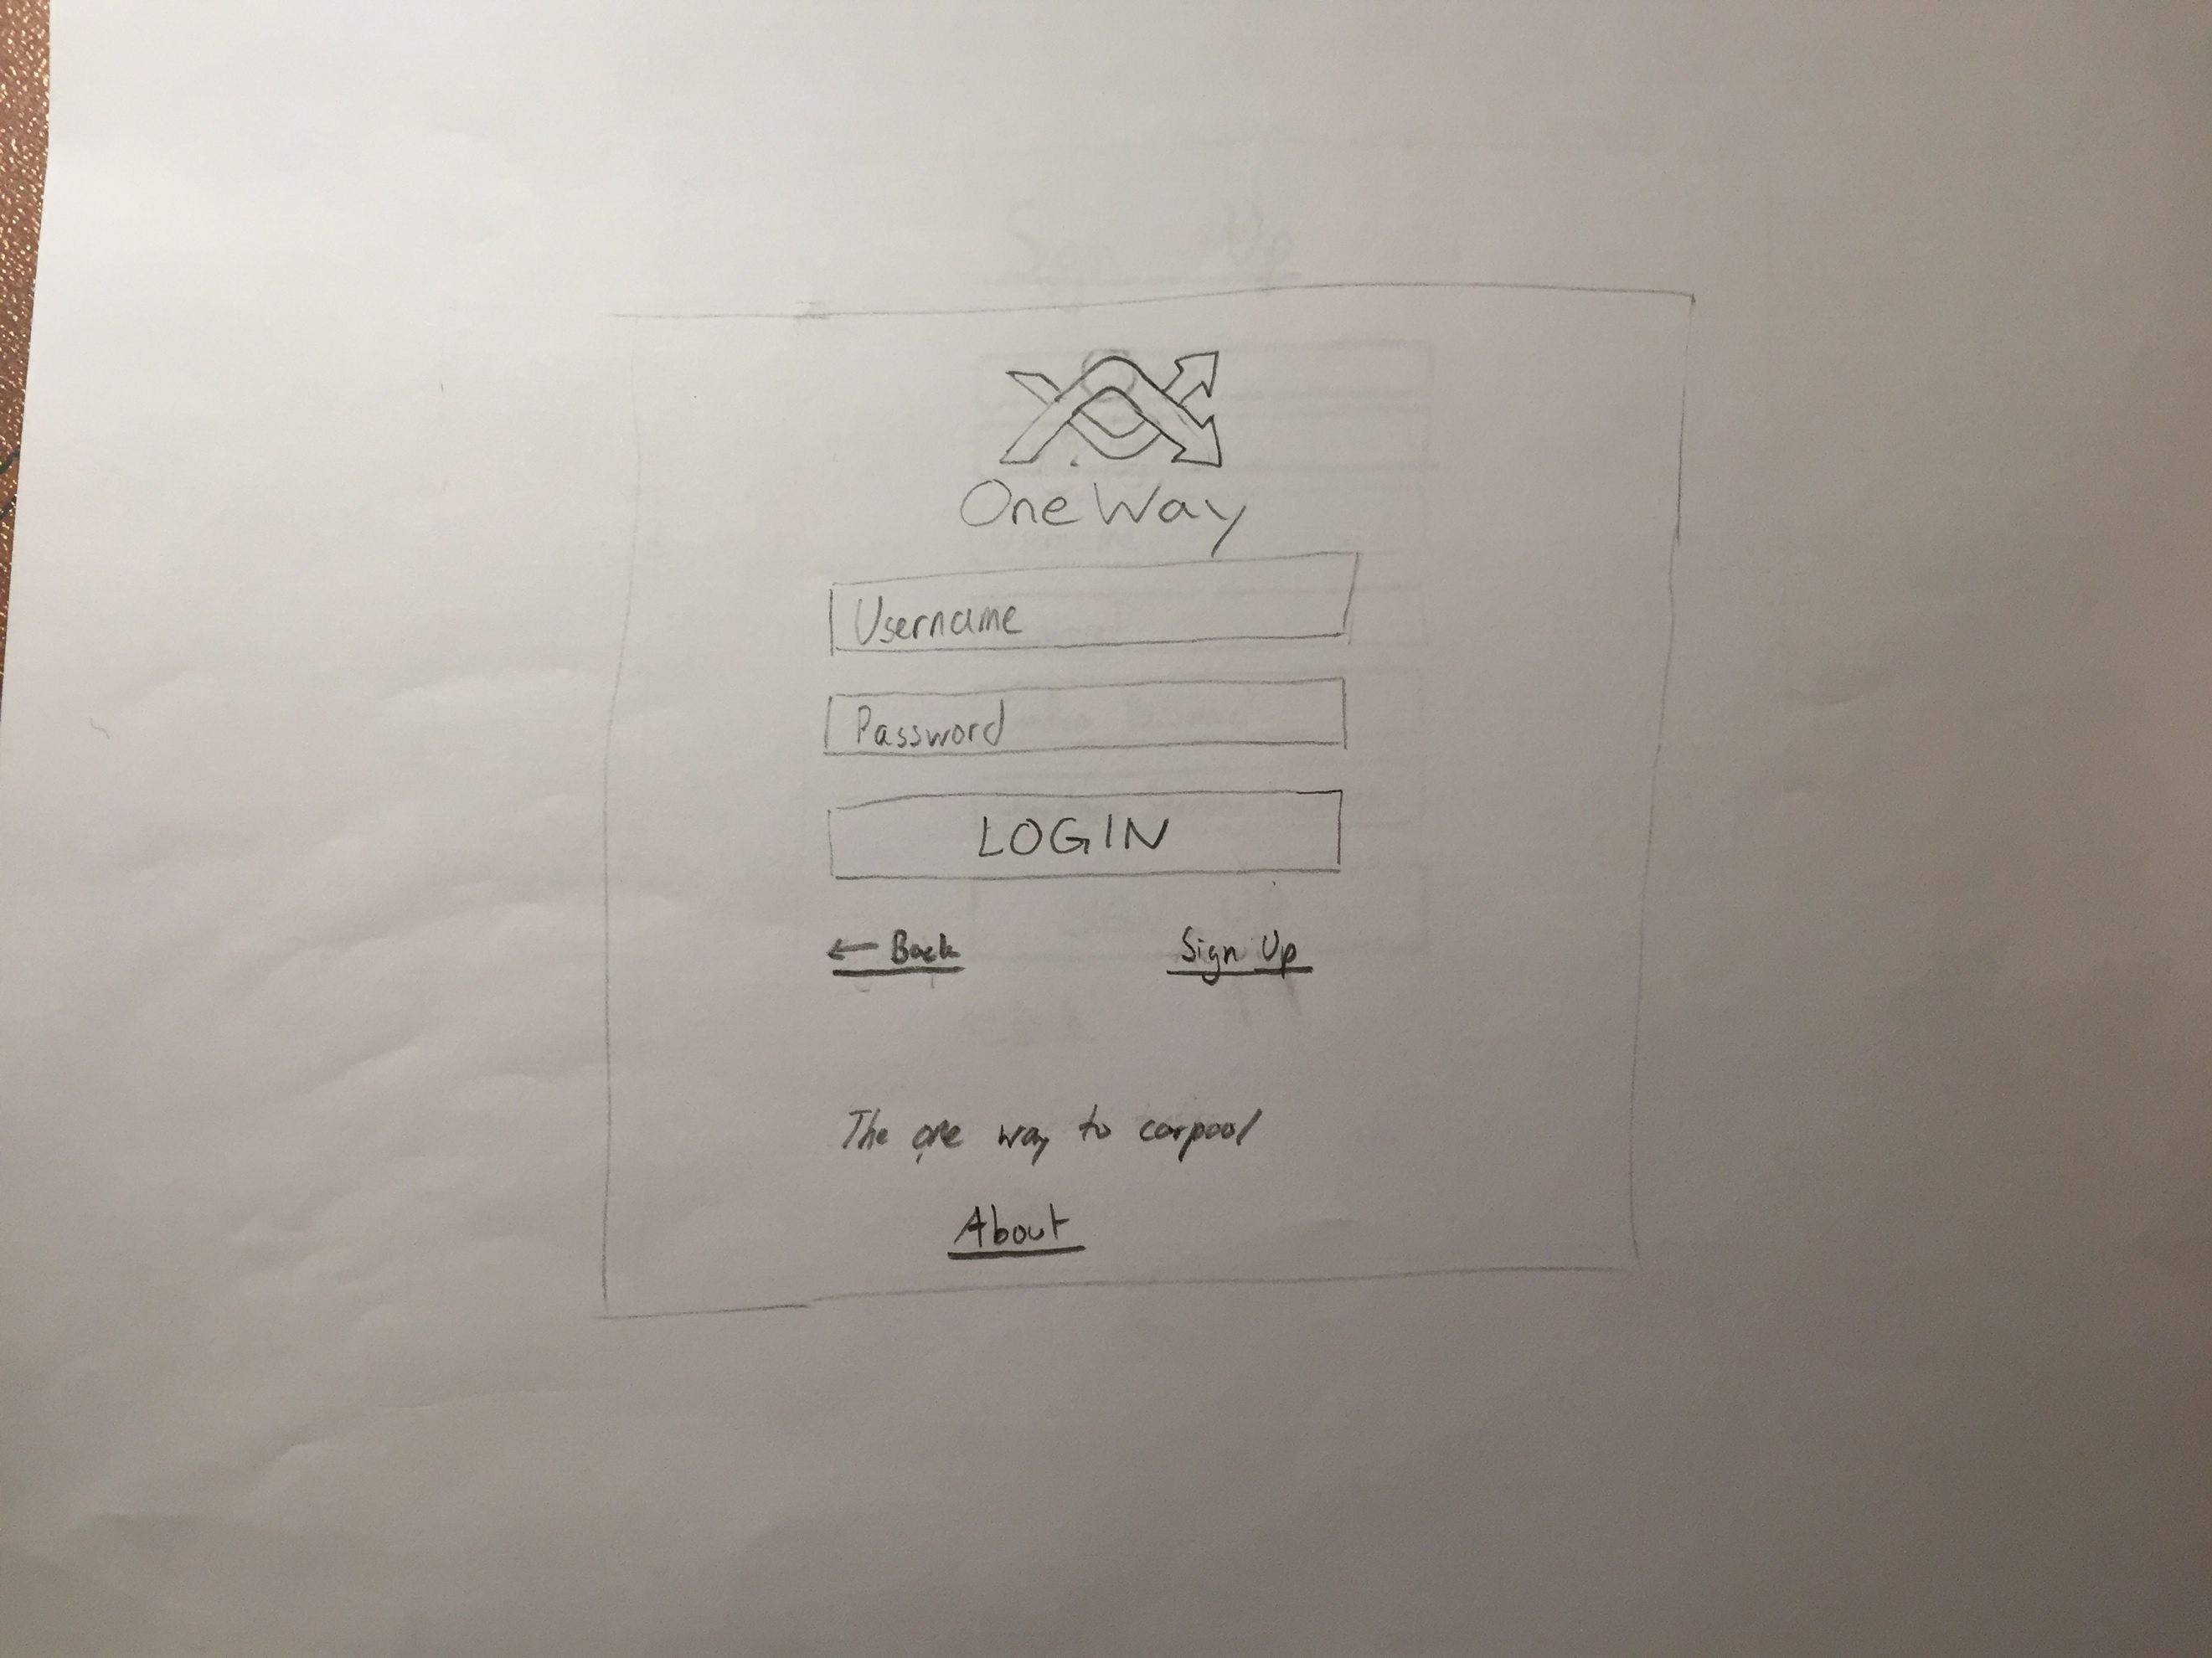 One Way
Username
Password
LOGIN
← Back Sign Up
The one way to carpool
About